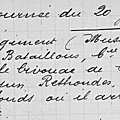 ournée du 20
giment (Mus
Bataillons, Cie
le bivouac de
Rethondes,
onds où il arr